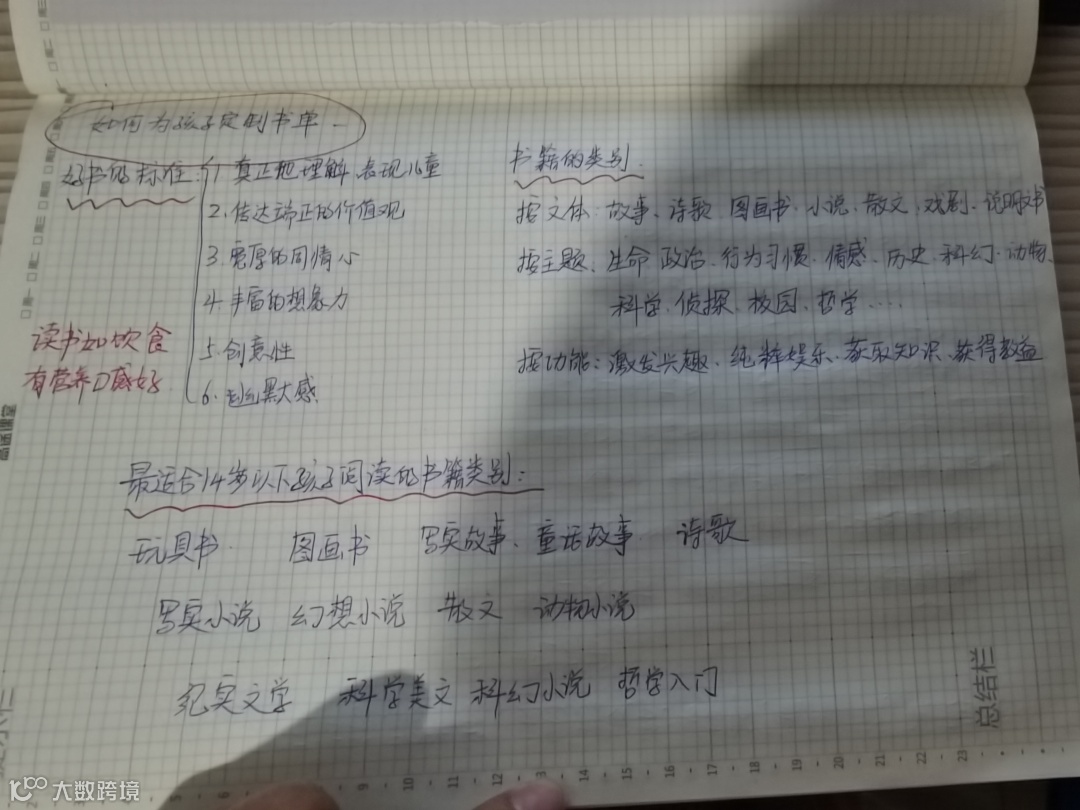 如何为孩子定制书单
好书的标准
1. 真正地理解、表现儿童
2. 传达端正的价值观
3. 宽厚的同情心
4. 丰富的想象力
5. 创意性
6. 幽默大感
读书如饮食
有营养口感好
书籍的类别
按文体：故事、诗歌、图画书、小说、散文、戏剧、说明书
按主题、生命、政治、行为习惯、情感、历史、科幻、动物、
科学、侦探、校园、哲学....
按功能：激发兴趣、纯粹娱乐、获取知识、获得教益
最适合14岁以下孩子阅读的书籍类别：
玩具书 图画书 写实故事、童话故事 诗歌
写实小说 幻想小说 散文 动物小说
纪实文学 科学美文 科幻小说 哲学入门
高途课堂
总结栏
5 6 7 8 9 10 11 12 13 14 15 16 17 18 19 20 21 22 23
大数跨境